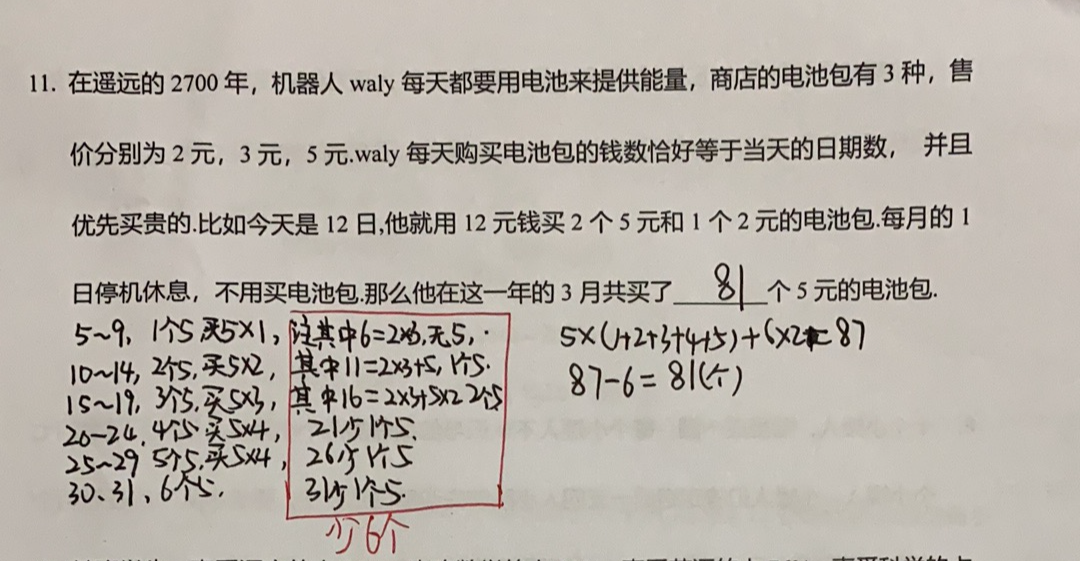 11. 在遥远的 2700 年，机器人 waly 每天都要用电池来提供能量，商店的电池包有 3 种，售
价分别为 2 元，3 元，5 元.waly 每天购买电池包的钱数恰好等于当天的日期数， 并且
优先买贵的.比如今天是 12 日,他就用 12 元钱买 2 个 5 元和 1 个 2 元的电池包.每月的 1
日停机休息，不用买电池包.那么他在这一年的 3 月共买了 81 个 5 元的电池包.
5~9, 1个5 买5×1, 注其中6=2×3,无5,
10~14, 2个5,买5×2, 其中11=2×3+5,1个5.
15~19, 3个5,买5×3, 其中16=2×3+5×2 2个5
20-24, 4个5 买5×4, 21少1个5.
25~29 5个5,买5×4, 26少1个5
30、31、6个5. 31少1个5.
少6个
5×(1+2+3+4+5)+6×2=87
87-6=81(个)